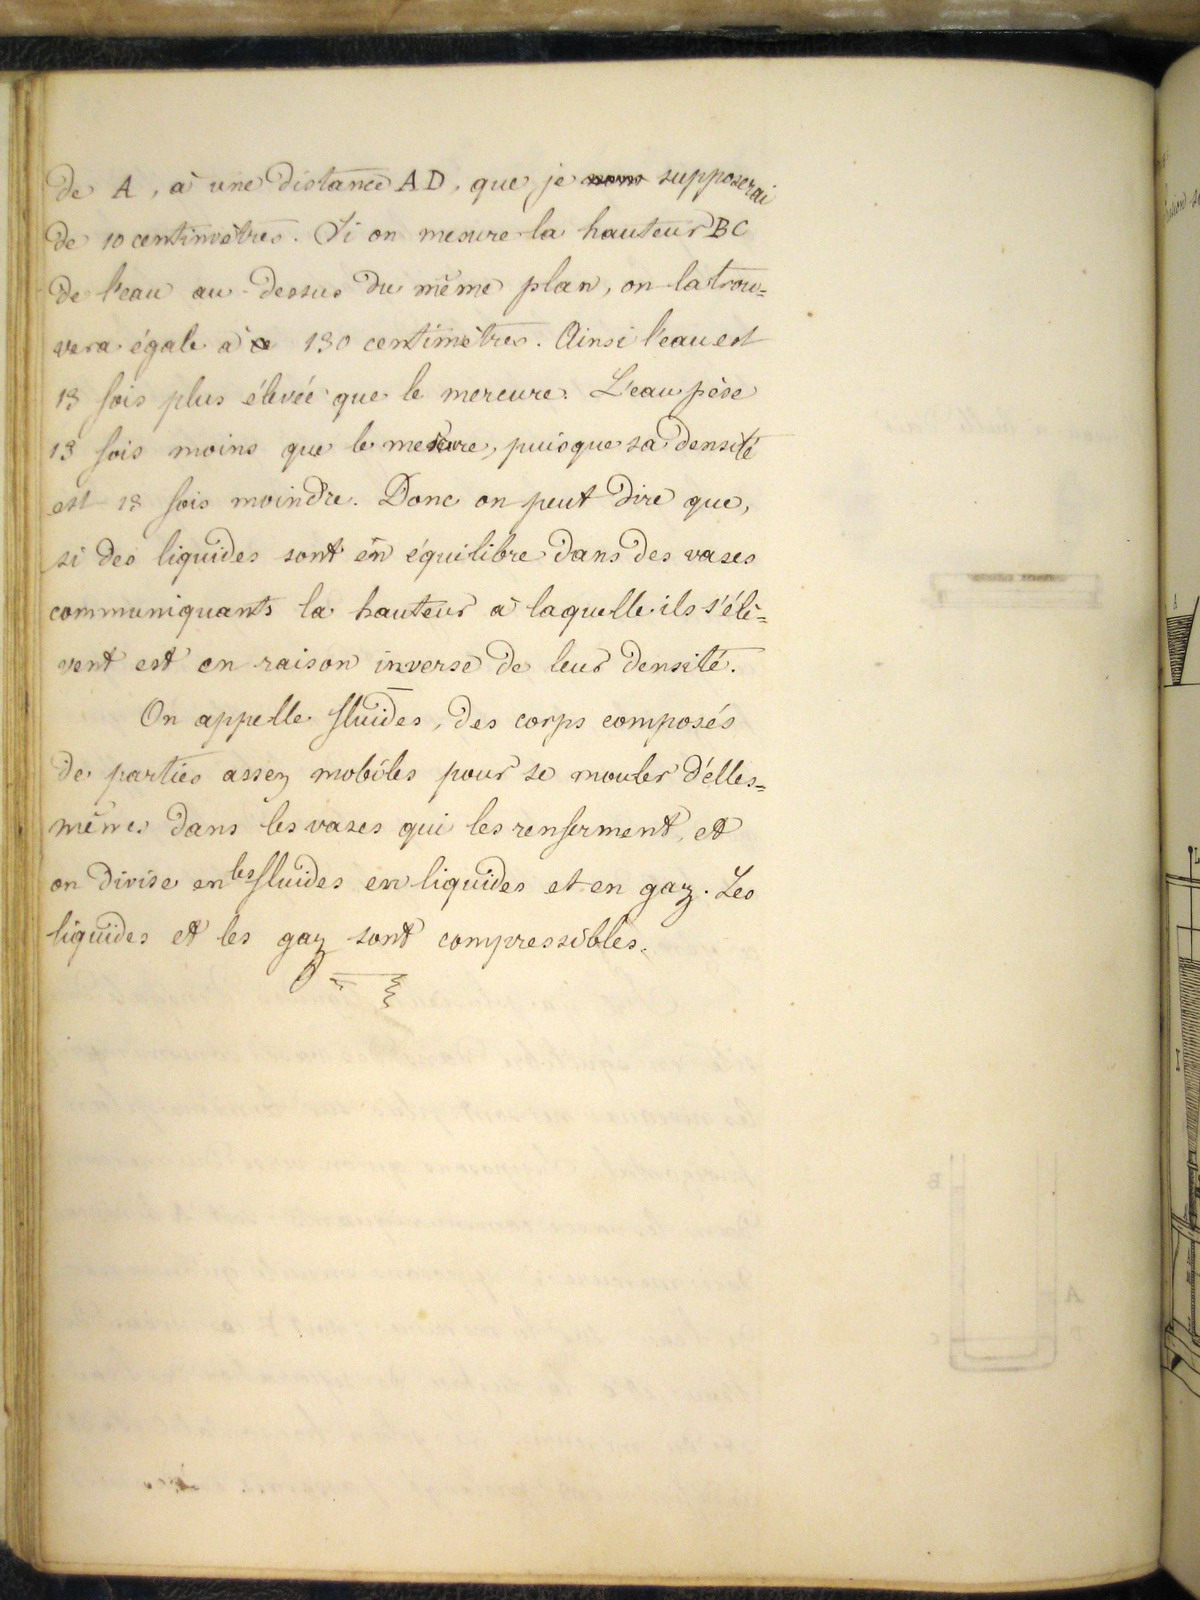 de A, à une distance AD, que je supposerai
de 10 centimètres. Si on mesure la hauteur BC
de l'eau au-dessus du même plan, on la trou=
vera égale à 130 centimètres. Ainsi l'eau est
13 fois plus élevée que le mercure. L'eau pèse
13 fois moins que le mercure, puisque sa densité
est 13 fois moindre. Donc on peut dire que,
si des liquides sont en équilibre dans des vases
communiquants la hauteur à laquelle ils s'élè=
vent est en raison inverse de leur densité.
On appelle fluides, des corps composés
de parties assez mobiles pour se mouler d'elles=
mêmes dans les vases qui les renferment, et
on divise en les fluides en liquides et en gaz. Les
liquides et les gaz sont compressibles.